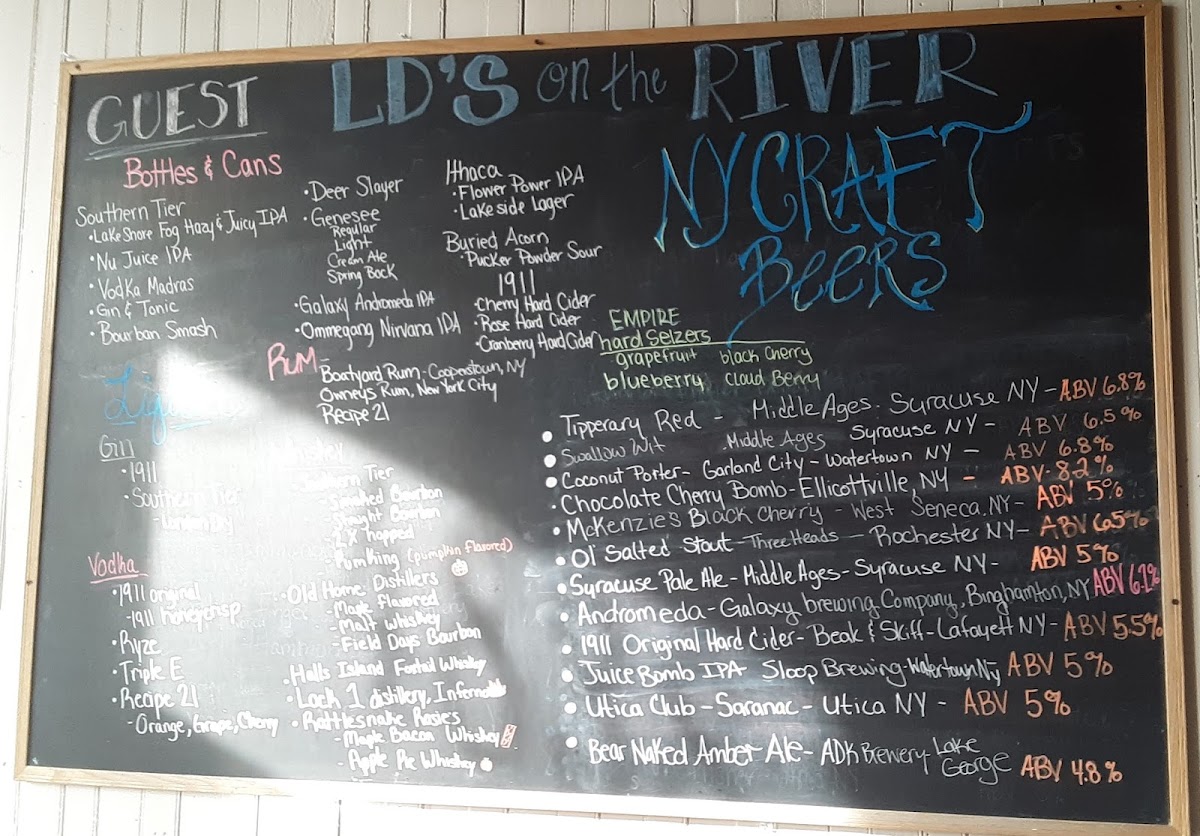 GUEST
LD'S on the RIVER
Bottles & Cans
Southern Tier
• Lake Shore Fog Hazy & Juicy IPA
• Nu Juice IPA
• Vodka Madras
• Gin & Tonic
• Bourban Smash
• Deer Slayer
• Genesee
Regular
Light
Cream Ale
Spring Bock
• Galaxy Andromeda IPA
• Ommegang Nirvana IPA
Ithaca
• Flower Power IPA
• Lakeside Lager
Buried Acorn
• Pucker Powder Sour
1911
• Cherry Hard Cider
• Rose Hard Cider
• Cranberry Hard Cider
RUM
Boatyard Rum - Cooperstown, NY
Owneys Rum, New York City
Recipe 21
Gin
• 1911
• Southern Tier
Vodka
• 1911 original
- 1911 honeycrisp
• Ryze
• Triple E
• Recipe 21
- Orange, Grape, Cherry
Southern Tier
- Smoked Bourbon
- Straight Bourbon
- 2X hopped
- Pumking (pumpkin flavored)
• Old Home Distillers
- Maple Flavored
- Malt whiskey
- Field Days Bourbon
• Halls Island Foxtail Whiskey
• Lock 1 distillery, Inferno
• Rattlesnake Rosies
- Maple Bacon Whiskey
- Apple Pie Whiskey
NY CRAFT
BeerS
EMPIRE
hard Selzers
grapefruit black Cherry
blueberry Cloud Berry
• Tipperary Red - Middle Ages - Syracuse NY - ABV 6.8%
• Swallow Wit Middle Ages Syracuse NY - ABV 6.5%
• Coconut Porter - Garland City - Watertown NY - ABV 6.8%
• Chocolate Cherry Bomb - Ellicottville, NY - ABV 8.2%
• McKenzie's Black Cherry - West Seneca, NY - ABV 5%
• Ol' Salted Stout - Three Heads - Rochester NY - ABV 6.5%
• Syracuse Pale Ale - Middle Ages - Syracuse NY - ABV 5%
• Andromeda - Galaxy brewing Company, Binghamton, NY ABV
• 1911 Original Hard Cider - Beak & Skiff - Lafayett NY - ABV 5.5%
• Juice Bomb IPA Sloop Brewing - Watertown Ny ABV 5%
• Utica Club - Saranac - Utica NY - ABV 5%
• Bear Naked Amber Ale - ADK Brewery - Lake George ABV 4.8%